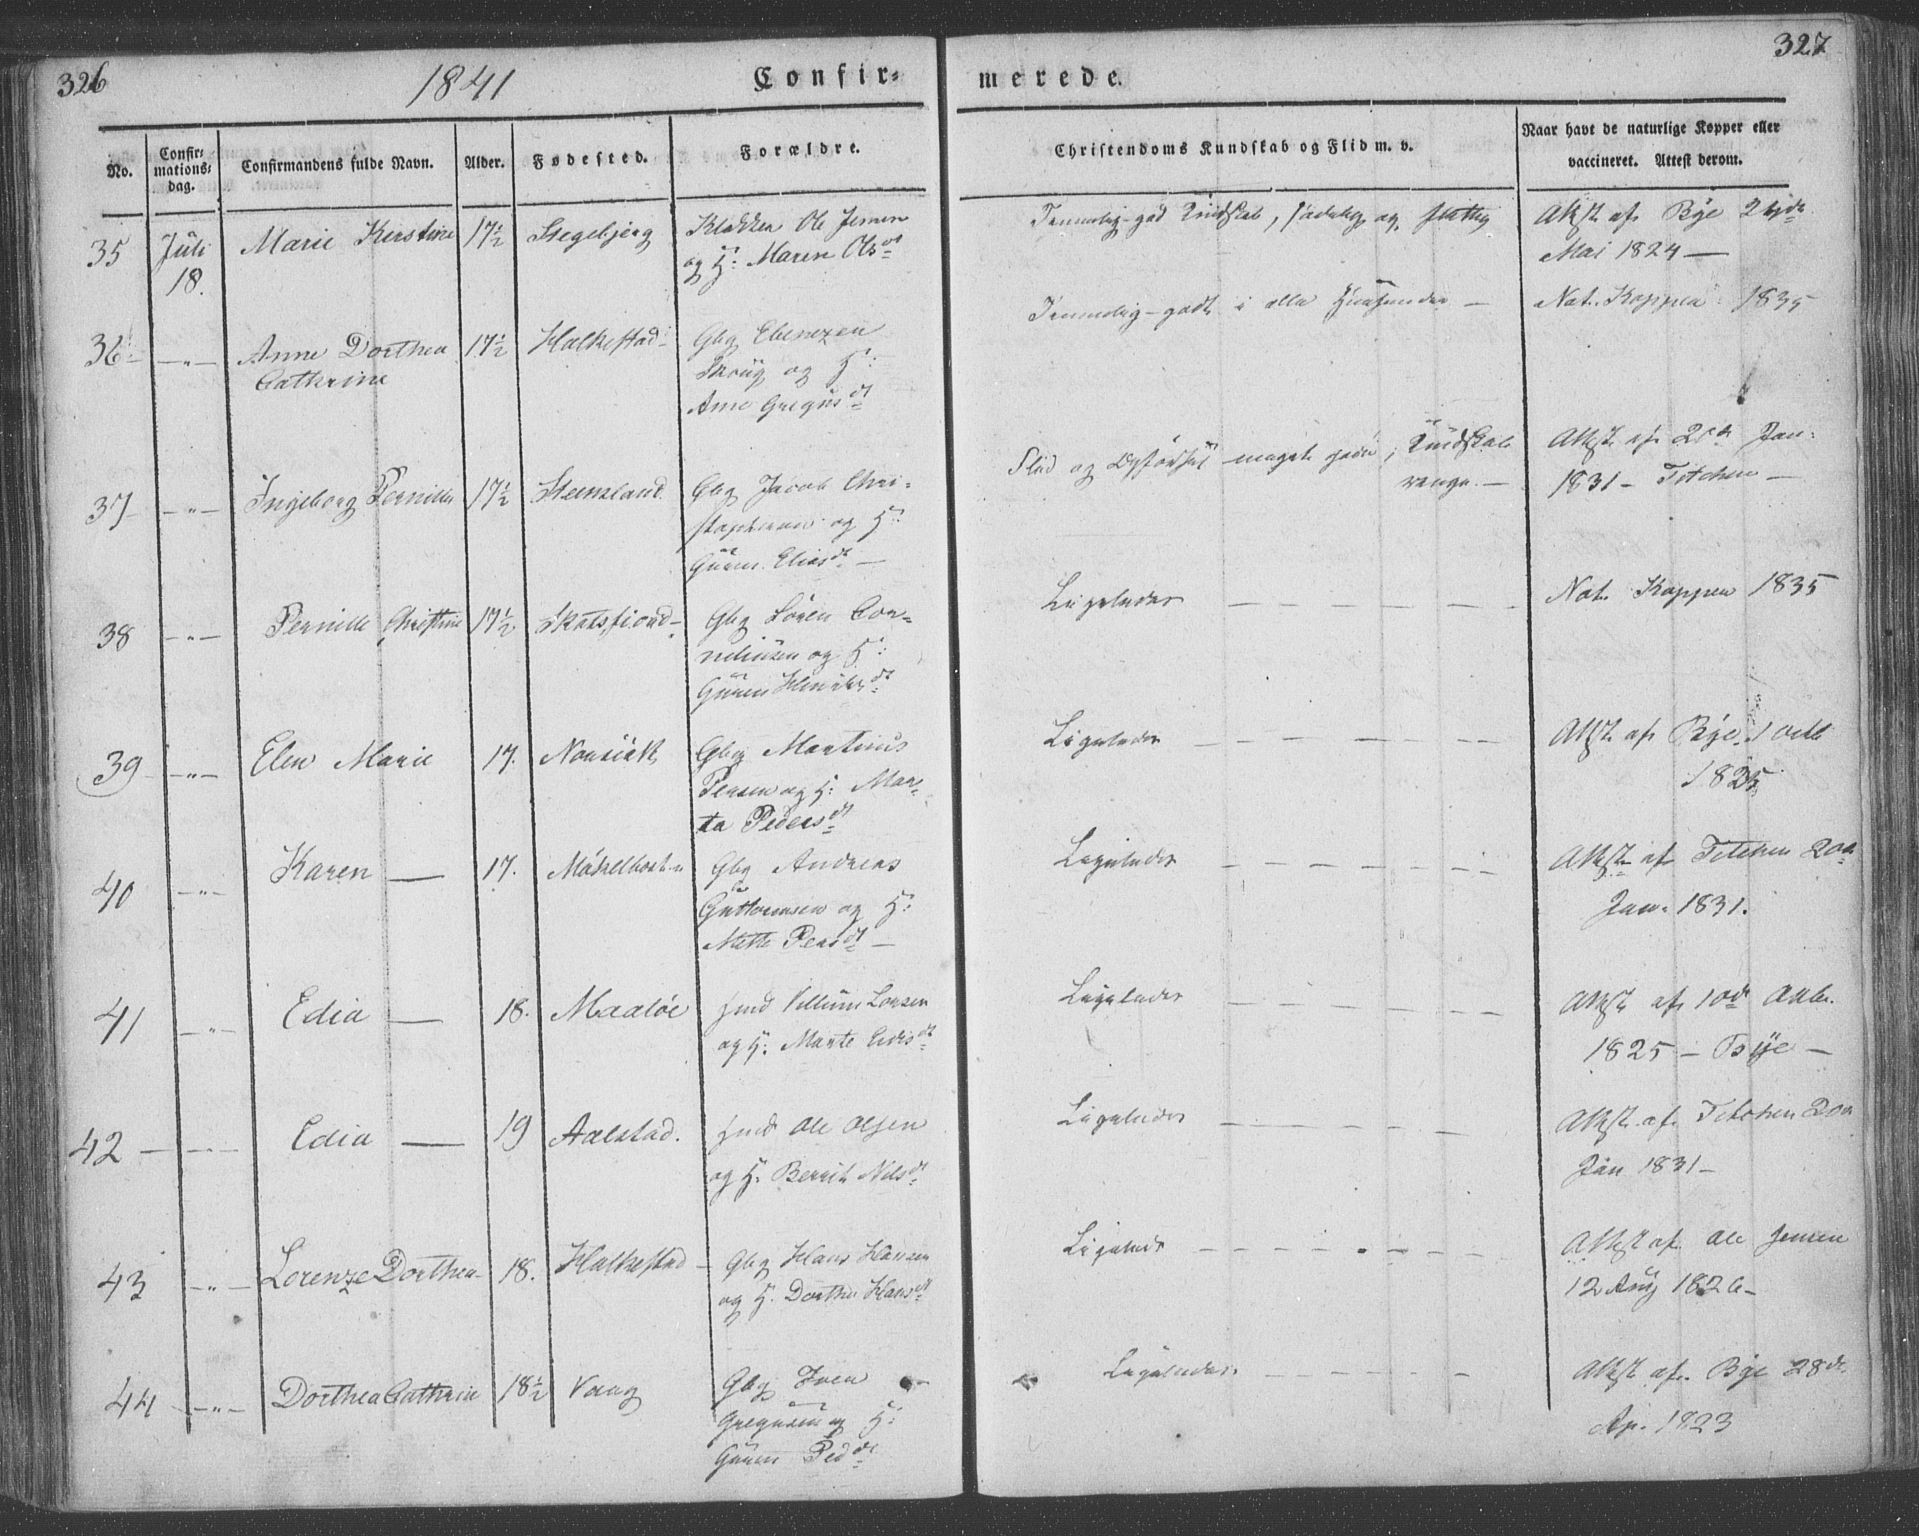 326
1841
Confir-
merede.
327
No.
Confir-
mations-
dag.
Confirmandens fulde Navn.
Alder.
Fødested.
Forældre.
Christendoms Kundskab og Flid m. v.
Naar havt de naturlige Kopper eller
vaccineret. Attest derom.
35 Juli Marie Kirstine 17½ Stegebjerg Klokker Ole Jensen
18. og H: Maren Olsdt
Temmelig god Kundskab, sædelig og flittig
Attst. af Bye
Mai 1824 —
36 — " — Anne Dorthea 17½ Halkestad Gbg Ebenezer
Cathrine
og H:
Ane Gregusdt
Temmelig godt i alle Henseender —
Nat. Kopper 1835
37 — " — Ingeborg Pernille 17½ Steensland Gbg Jacob Chri-
stophersen og H:
Guren Eliasdt —
Flid og Opførsel meget god, Kundskab
ringe. —
Attst. af Jan:
1831 — Titchen —
38 — " — Pernille Christine 17½ Skotsfiord Gbg Sören Cor-
neliusen og H:
Guren Henriksdt
Ligeledes — — — — — —
Nat. Kopper 1835
39 — " — Elen Marie 17. Gbg Martinus
Persen og H: Mar-
ta Pedersdt
Ligeledes — — — — — —
Attst. af Bye 1 Octb
1825
40 — " — Karen — 17. Gbg Andreas
Guttormsen og H:
Mette Persdt —
Ligeledes — — — — — —
Attst. af Titchen 20de
Jan. 1831.
41 — " — Edia — 18. Maaløe Hmd Villum Larsen
og H: Marte
Ligeledes — — — — — —
Attst. af 10de Octbr.
1825 — Bye —
42 — " — Edia — 19 Aalstad. Hmd Ole Olsen
og H. Berrit Nilsdt
Ligeledes — — — — — —
Attst. af Titchen 20de
Jan 1831 —
43 — " — Lorenze Dorthea 18. Halkestad — Gbg Hans Hansen
og H. Dorthe Hansdt
Ligeleds — — — — — —
Attst af Ole Jensen
12 Aug 1826 —
44 — " — Dorthea Cathrin 18½ Vaag Gbg Iver
Gregusen og H:
Guren Peddt
Ligeledes — — — — — —
Attst af. Bye 28de
Ap. 1823